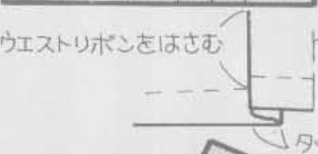 ウエストリボンをはさむ